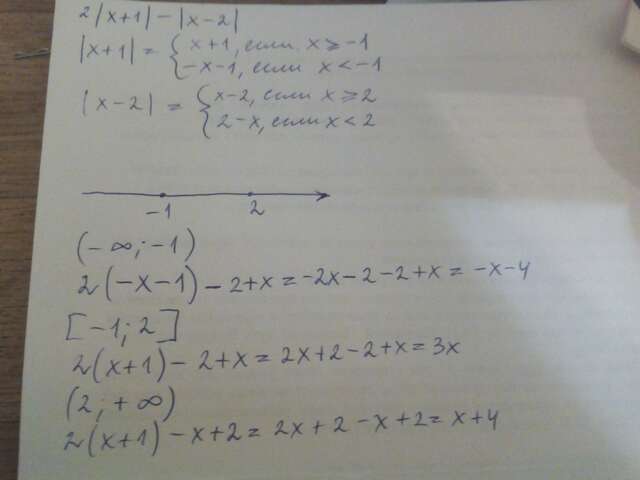 2|x+1| - |x-2|
|x+1| = { x+1, если x ≥ -1
-x-1, если x < -1
|x-2| = { x-2, если x ≥ 2
2-x, если x < 2
-1 2
(-∞; -1)
2(-x-1) - 2+x = -2x-2-2+x = -x-4
[-1; 2]
2(x+1) - 2+x = 2x+2-2+x = 3x
(2; +∞)
2(x+1) - x+2 = 2x+2-x+2 = x+4